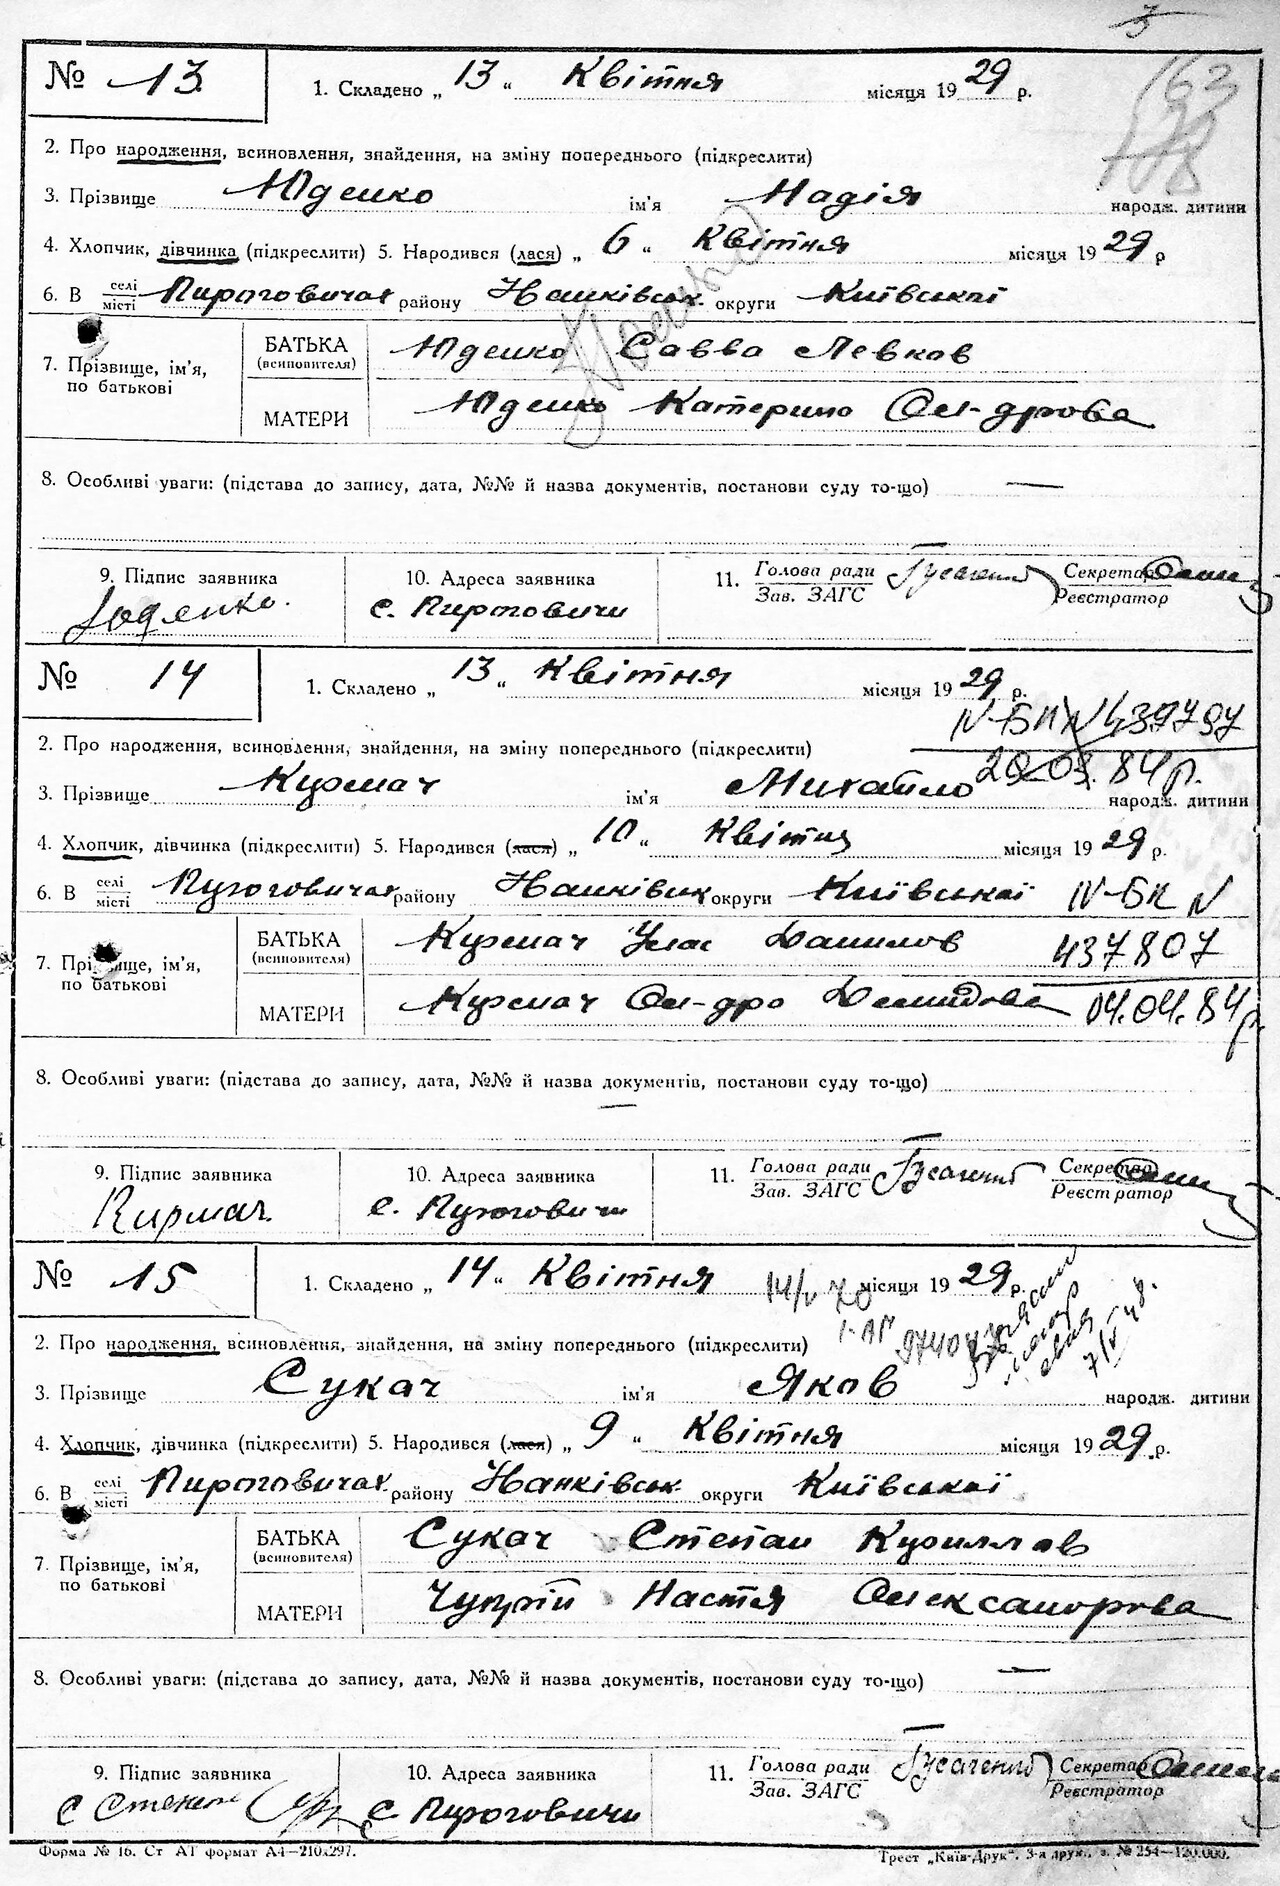 3
№ 13.
1. Складено „ 13 “ Квітня місяця 1929 р.
163
2. Про народження, всиновлення, знайдення, на зміну попереднього (підкреслити)
3. Прізвище Юденко ім'я Надія народж. дитини
4. Хлопчик, дівчинка (підкреслити) 5. Народився (лася) „ 6 “ Квітня місяця 1929 р
6. В селі місті Пироговичах району Іванківськ. округи Київської
7. Прізвище, ім'я, по батькові
БАТЬКА (всиновителя) Юденко Савва Левков
МАТЕРИ Юденко Катерино Ол-дрова
8. Особливі уваги: (підстава до запису, дата, №№ й назва документів, постанови суду то-що) —
9. Підпис заявника Юденко.
10. Адреса заявника с. Пироговичи
11. Голова ради Зав. ЗАГС Гусаченко Секретар Реєстратор
№ 14
1. Складено „ 13 “ Квітня місяця 1929 р.
IV-БК N 439797
2. Про народження, всиновлення, знайдення, на зміну попереднього (підкреслити)
20.03.84 р.
3. Прізвище Курмач ім'я Михайло народж. дитини
4. Хлопчик, дівчинка (підкреслити) 5. Народився (лася) „ 10 “ Квітня місяця 1929 р.
6. В селі місті Пироговичах району Іванківськ округи Київської
IV-БК N
437807
04.04.84 р.
7. Прізвище, ім'я, по батькові
БАТЬКА (всиновителя) Курмач Улас Данилов
МАТЕРИ Курмач Ол-дро Демидова
8. Особливі уваги: (підстава до запису, дата, №№ й назва документів, постанови суду то-що)
—
9. Підпис заявника Курмач.
10. Адреса заявника с. Пироговичи
11. Голова ради Зав. ЗАГС Гусаченко Секретар Реєстратор
№ 15
1. Складено „ 14 “ Квітня місяця 1929 р.
2. Про народження, всиновлення, знайдення, на зміну попереднього (підкреслити)
3. Прізвище Сукач ім'я Яков народж. дитини
4. Хлопчик, дівчинка (підкреслити) 5. Народився (лася) „ 9 “ Квітня місяця 1929 р.
6. В селі місті Пироговичах району Іванківськ округи Київської
7. Прізвище, ім'я, по батькові
БАТЬКА (всиновителя) Сукач Степан Кириллов
МАТЕРИ Чуприй Настя Олександрова
8. Особливі уваги: (підстава до запису, дата, №№ й назва документів, постанови суду то-що) —
9. Підпис заявника
10. Адреса заявника с. Пироговичи
11. Голова ради Зав. ЗАГС Гусаченко Секретар Реєстратор
Форма № 16. Ст АТ формат А4—210х297.
Трест „Київ-Друк“. 3-я друк., з. № 254—120.000.